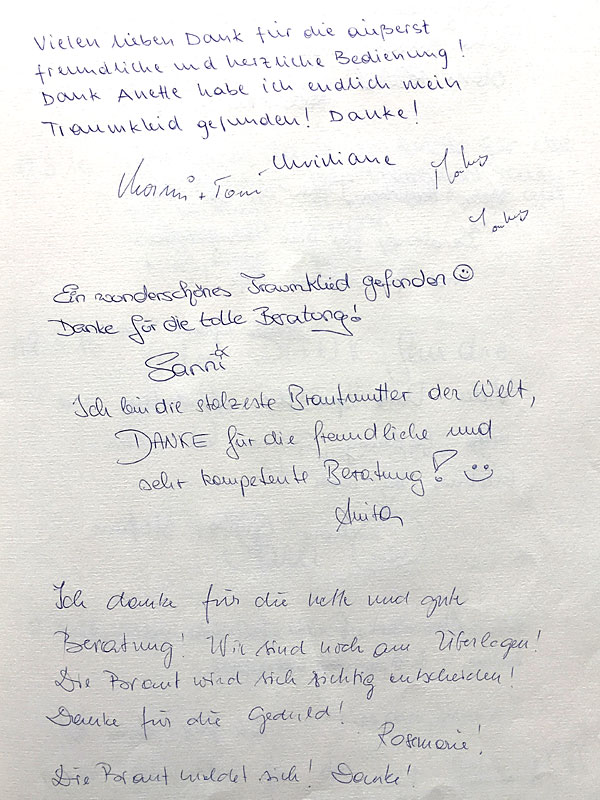 Vielen lieben Dank für die äußerst
freundliche und herzliche Bedienung!
Dank Anette habe ich endlich mein
Traumkleid gefunden! Danke!
+ Toni
Ein wunderschönes Traumklied gefunden
Danke für die tolle Beratung!
Sanni
Ich bin die stolzeste Brautmutter der Welt,
DANKE für die freundliche und
sehr kompetente Beratung!
Anita
Ich danke für die nette und gute
Beratung! Wir sind noch am Überlegen!
Die Braut wird sich richtig entscheiden!
Danke für die Geduld!
Rosmarie!
Die Braut meldet sich! Danke!